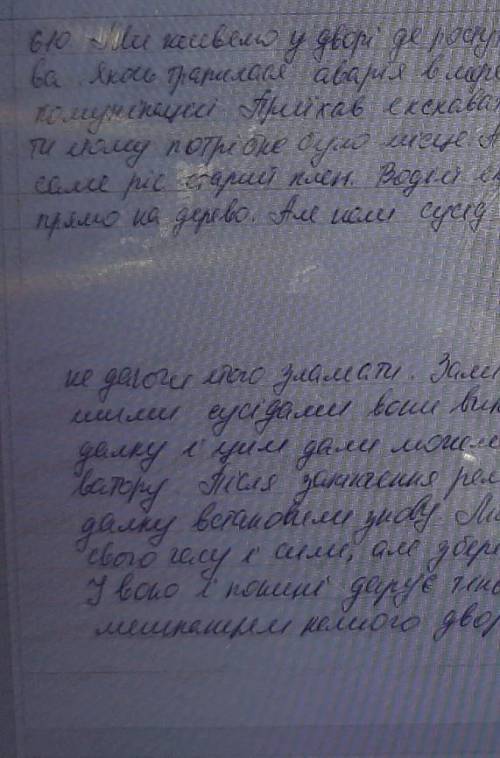 610 Ми живемо у дворі де росту
ва Якось трапилася аварія в мере
комунікацій Приїхав екскава
ти йому потрібне було місце А
саме ріс старий клен. Водій ек
прямо на дерево. Але коли сусід
не дагоги його зламати. Зали
шими сусідами вони вик
далку і цим дали можли
ватору Після закінчення рем
далку встановили знову Лю
свого часу і сили, але збере
І воно і понині дарує тінь
мешканцям нашого двор